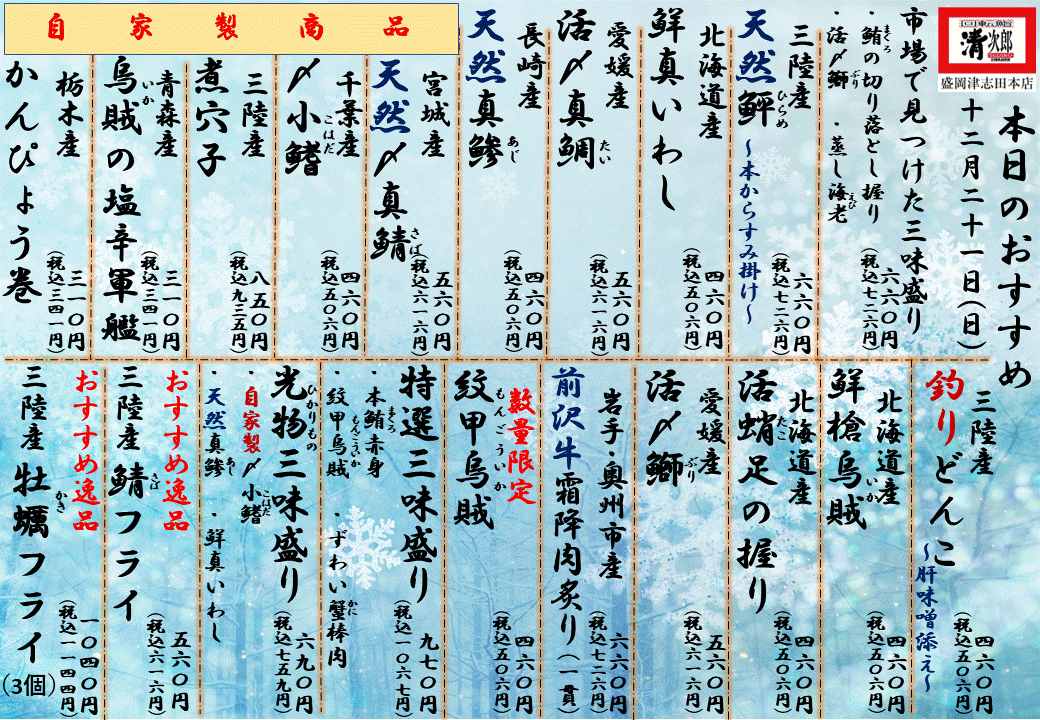 回転鮨
清次郎
盛岡津志田本店
本日のおすすめ
十二月二十一日(日)
市場で見つけた三味盛り
・鮪の切り落とし握り
まぐろ
・活〆鰤
ぶり
・蒸し海老
えび
六六〇円
(税込七二六円)
三陸産
天然鮃
ひらめ
~本からすみ掛け~
六六〇円
(税込七二六円)
北海道産
鮮真いわし
四六〇円
(税込五〇六円)
愛媛産
活〆真鯛
たい
五六〇円
(税込六一六円)
長崎産
天然真鯵
あじ
四六〇円
(税込五〇六円)
自家製商品
宮城産
天然〆真鯖
さば
五六〇円
(税込六一六円)
千葉産
〆小鰭
こはだ
四六〇円
(税込五〇六円)
三陸産
煮穴子
八五〇円
(税込九三五円)
青森産
烏賊の塩辛軍艦
いか
三一〇円
(税込三四一円)
栃木産
かんぴょう巻
三一〇円
(税込三四一円)
三陸産
釣りどんこ
~肝味噌添え~
四六〇円
(税込五〇六円)
北海道産
鮮槍烏賊
いか
四六〇円
(税込五〇六円)
北海道産
活蛸足の握り
たこ
四六〇円
(税込五〇六円)
愛媛産
活〆鰤
ぶり
五六〇円
(税込六一六円)
岩手・奥州市産
前沢牛霜降肉炙り(一貫)
六六〇円
(税込七二六円)
数量限定
紋甲烏賊
もんごういか
四六〇円
(税込五〇六円)
特選三味盛り
・本鮪赤身
まぐろ
・紋甲烏賊
もんごういか
・ずわい蟹棒肉
かに
九七〇円
(税込一〇六七円)
光物三味盛り
ひかりもの
・自家製〆小鰭
こはだ
・天然真鯵
あじ
・鮮真いわし
六九〇円
(税込七五九円)
おすすめ逸品
三陸産 鯖フライ
さば
五六〇円
(税込六一六円)
おすすめ逸品
三陸産 牡蠣フライ(3個)
かき
一〇四〇円
(税込一一四四円)